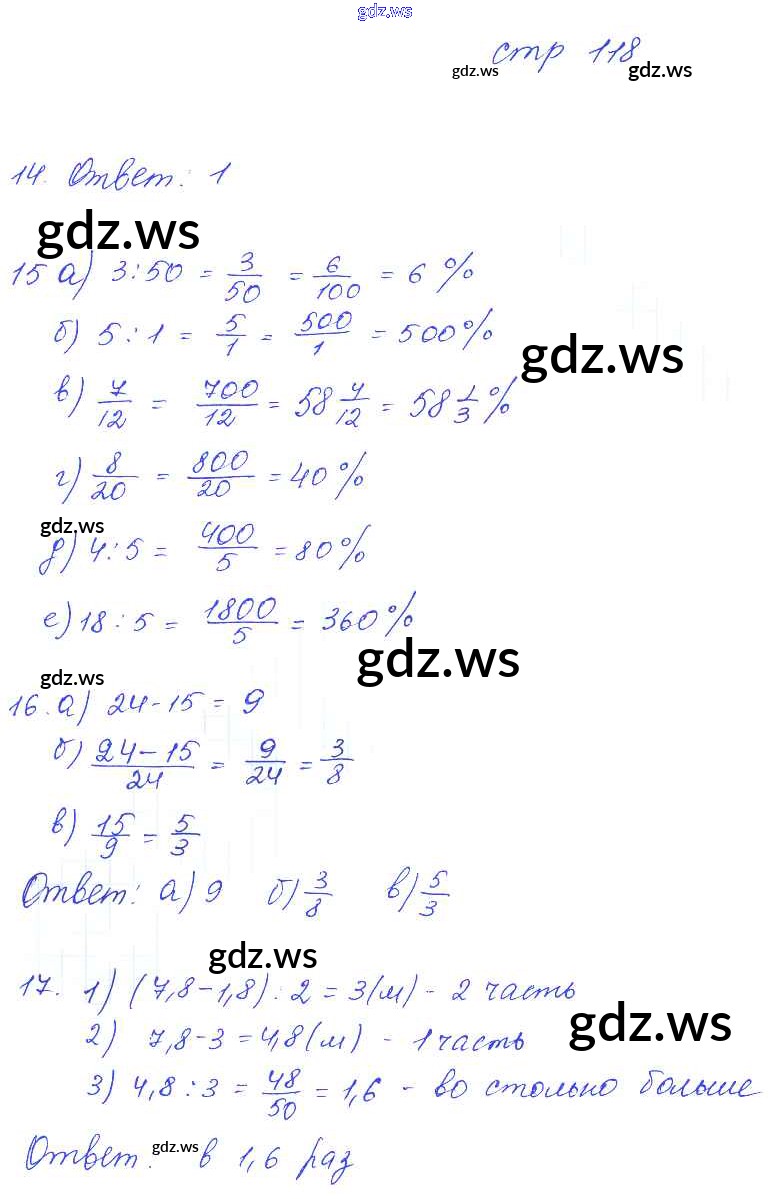 gdz.ws
стр 118
gdz.ws gdz.ws
14. Ответ: 1
gdz.ws
15 а) 3:50 = 3/50 = 6/100 = 6 %
б) 5:1 = 5/1 = 500/1 = 500%
gdz.ws
в) 7/12 = 700/12 = 58 4/12 = 58 1/3 %
г) 8/20 = 800/20 = 40 %
gdz.ws
д) 4:5 = 400/5 = 80%
е) 18:5 = 1800/5 = 360%
gdz.ws
gdz.ws
16. а) 24-15 = 9
б) 24-15/24 = 9/24 = 3/8
в) 15/9 = 5/3
Ответ: а) 9 б) 3/8 в) 5/3
gdz.ws
17. 1) (7,8-1,8):2 = 3(м) - 2 часть
gdz.ws
2) 7,8-3 = 4,8(м) - 1 часть
3) 4,8:3 = 48/50 = 1,6 - во столько больше
gdz.ws
Ответ: в 1,6 раз